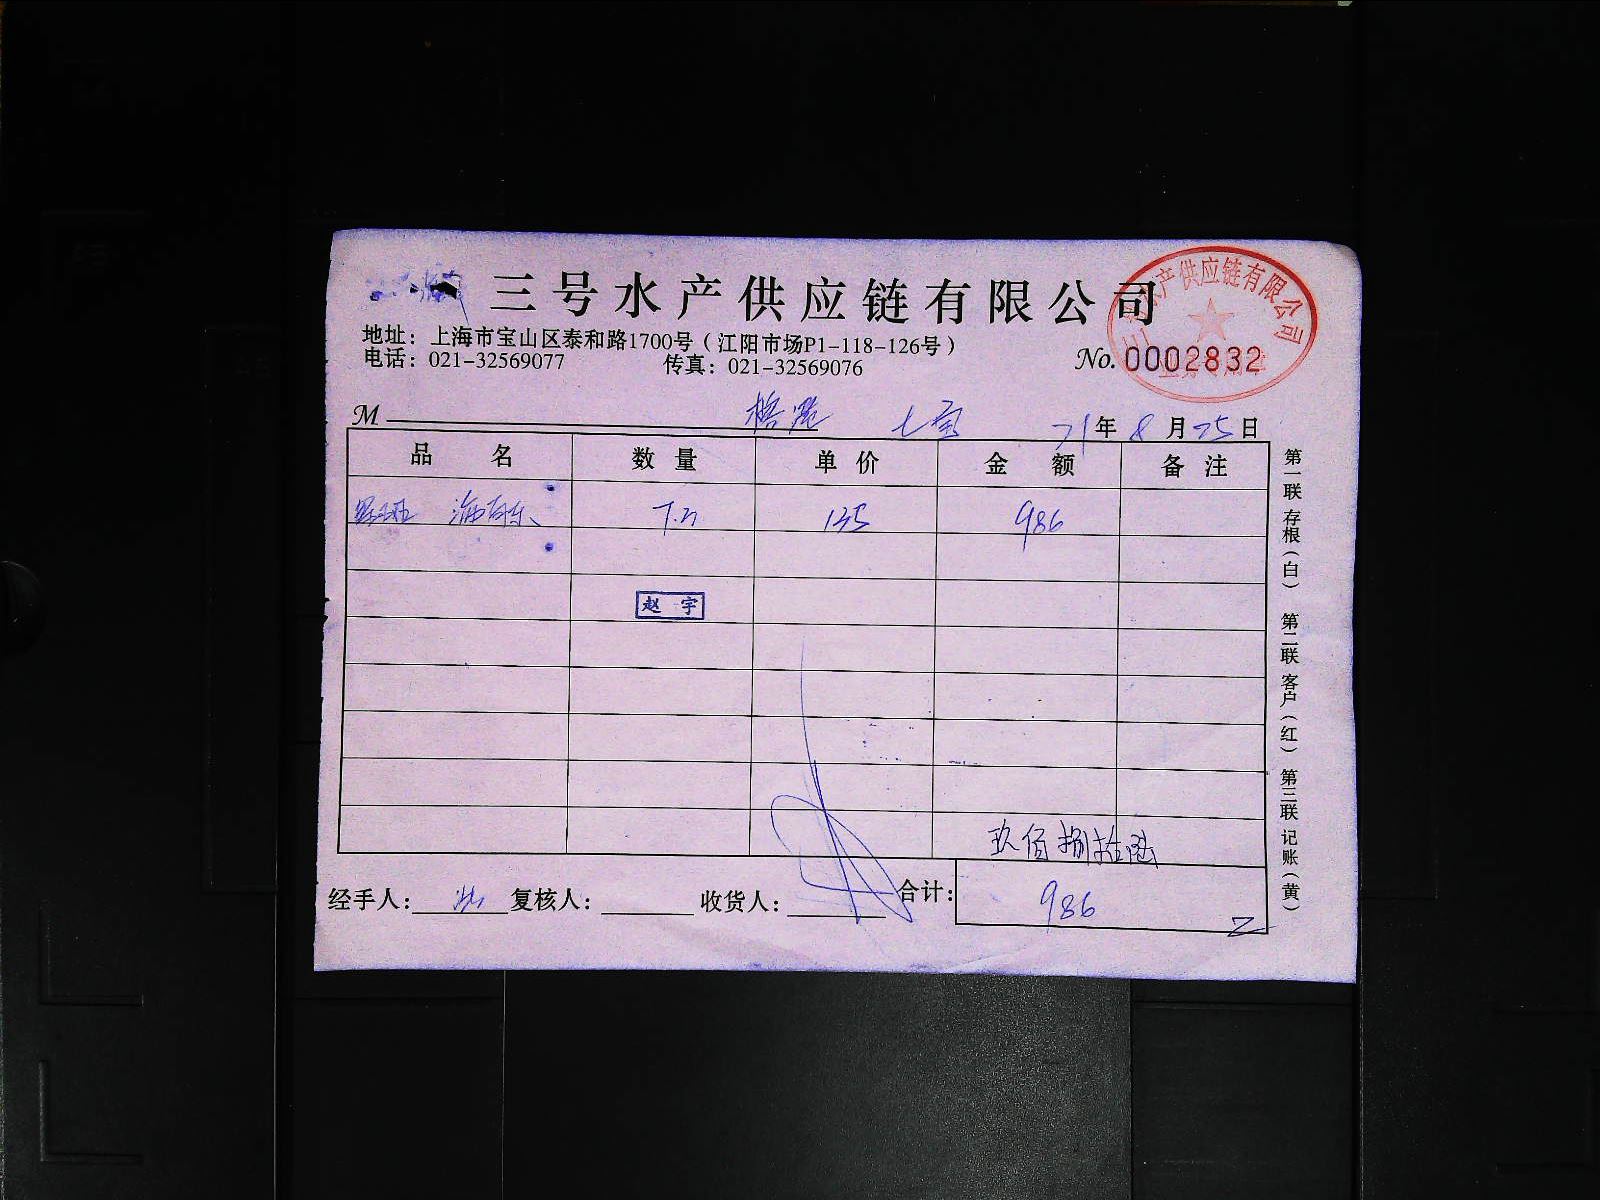 三号水产供应链有限公司
地址：上海市宝山区泰和路1700号（江阳市场P1-118-126号）
电话：021-32569077 传真：021-32569076
No. 0002832
水产供应链有限公司
M 七宝 21年8月25日
品名 数量 单价 金额 备注
135 986
赵宇
玖佰捌拾陆
经手人： 复核人： 收货人： 合计： 986
第一联 存根（白） 第二联 客户（红） 第三联 记账（黄）